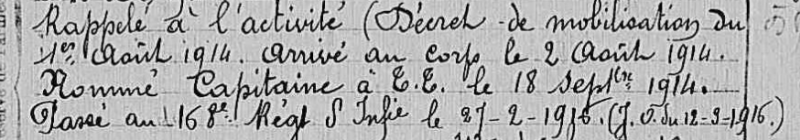 Rappelé à l'activité (Décret de mobilisation du
1er Août 1914. Arrivé au corps le 2 Août 1914.
Nommé Capitaine à T.T. le 18 Septbre 1914.
Passé au 168e Régt d'Infie le 27-2-1916. (J.O. du 12-3-1916.)